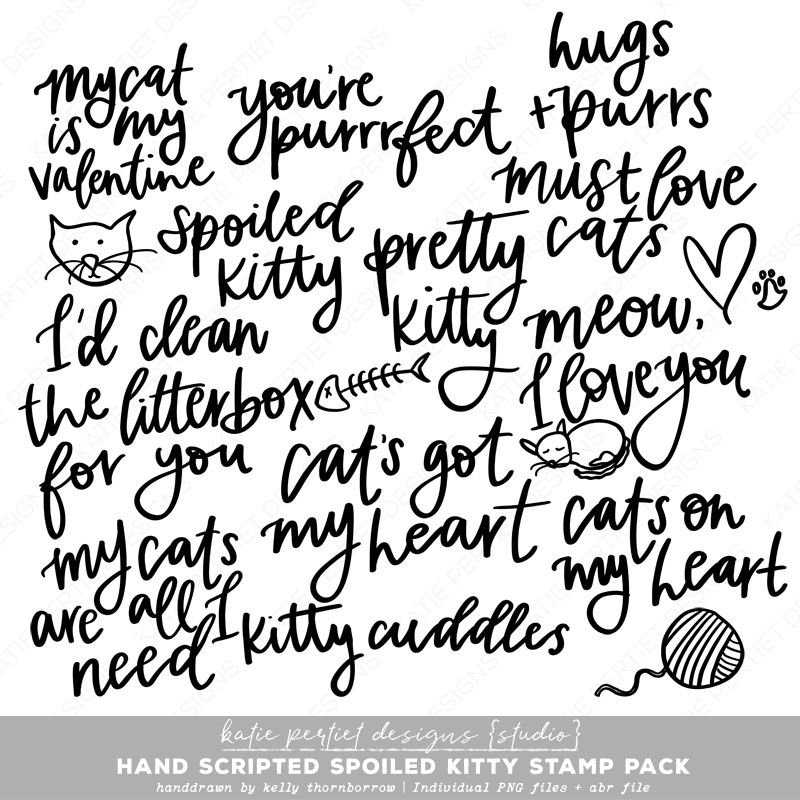 my cat
is my
valentine
you're
purrrfect
hugs
+purrs
must love
cats
spoiled
kitty
pretty
kitty
I'd clean
the litterbox
for you
meow,
I love you
cat's got
my heart
cats on
my heart
my cats
are all I
need
kitty cuddles
katie pertiet designs {studio}
HAND SCRIPTED SPOILED KITTY STAMP PACK
handdrawn by kelly thornborrow | Individual PNG files + abr file
KATIE PERTIET DESIGNS